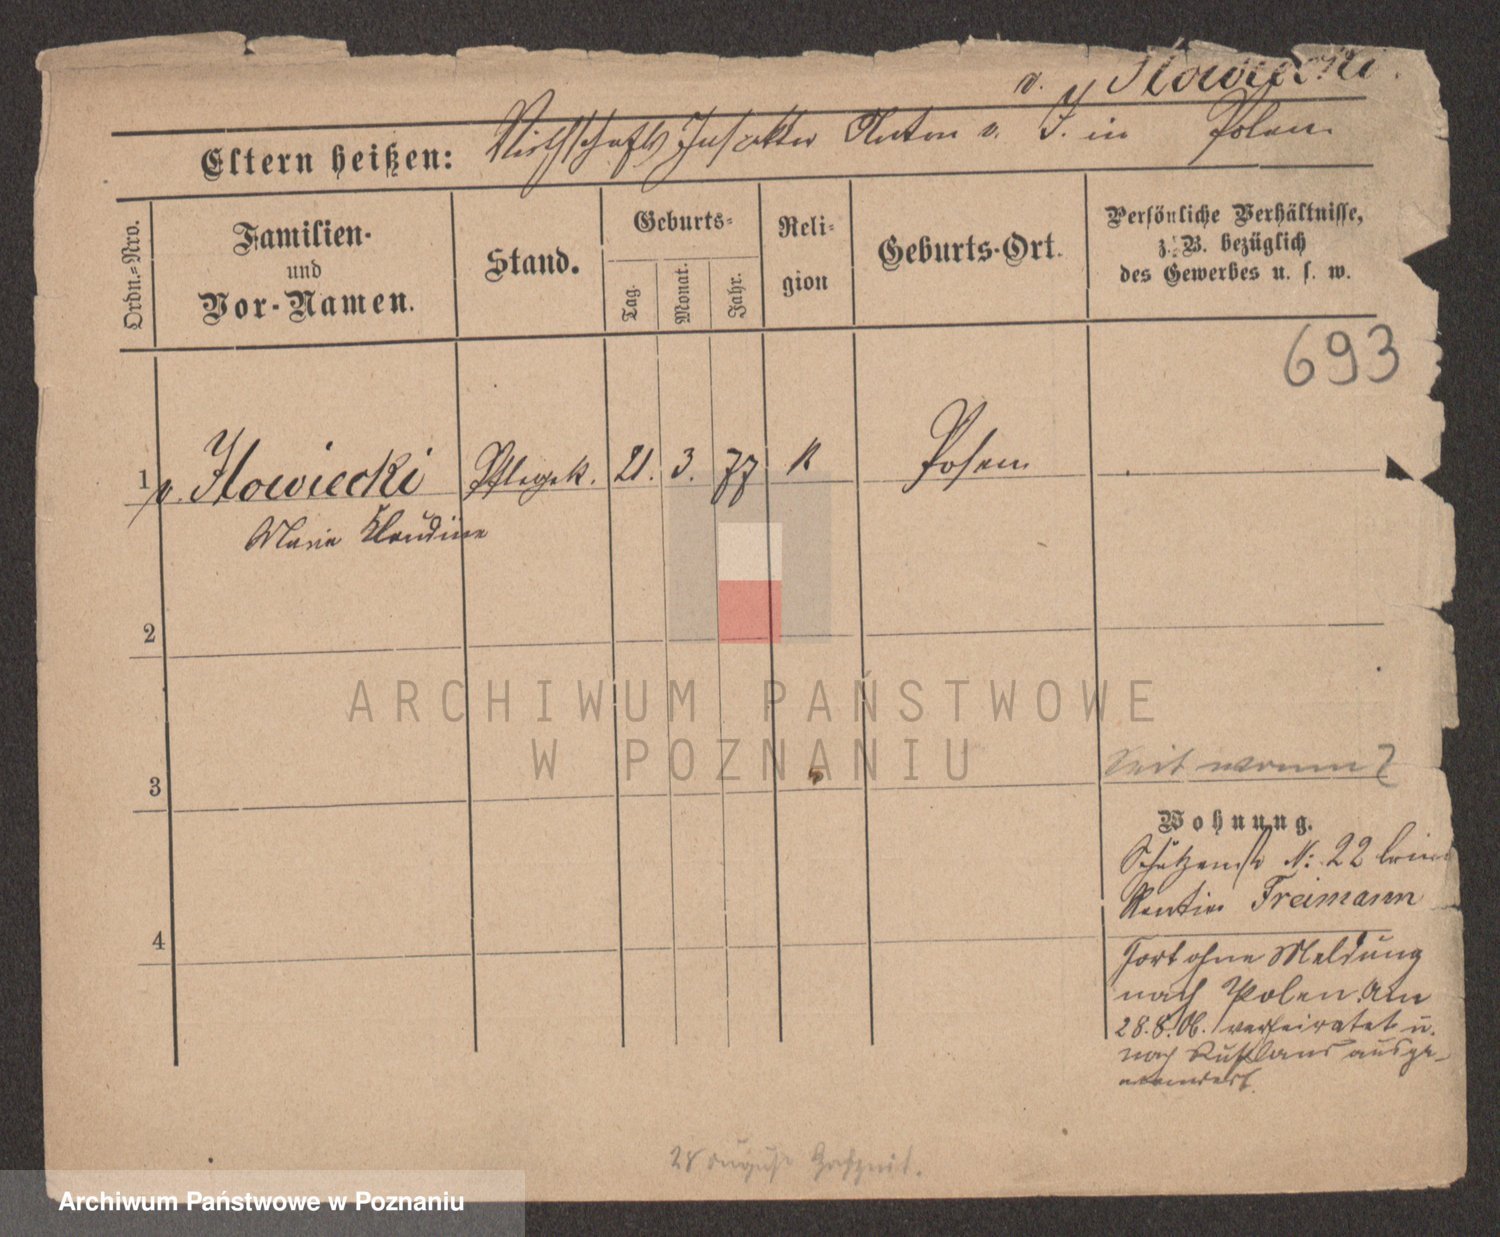 v. Iłowiecki.
Eltern heißen: Wirthschafts Inspektor Anton v. I. in Polen
Ordn.-Nro.
Familien-
und
Vor-Namen.
Stand.
Geburts-
Tag.
Monat.
Jahr.
Reli-
gion
Geburts-Ort.
Persönliche Verhältnisse,
z. B. bezüglich
des Gewerbes u. s. w.
693
1 v. Iłowiecki Pflegek. 21. 3. 77 K Posen
Marie Klaudine
2
ARCHIWUM PAŃSTWOWE
W POZNANIU
Seit wann?
3
Wohnung.
Schützenstr N: 22 beim
Rentier Freimann
4
Fort ohne Meldung
nach Polen. Am
28.8.06. verheiratet u.
nach Rußland ausge-
wandert.
28 August Hochzeit.
Archiwum Państwowe w Poznaniu